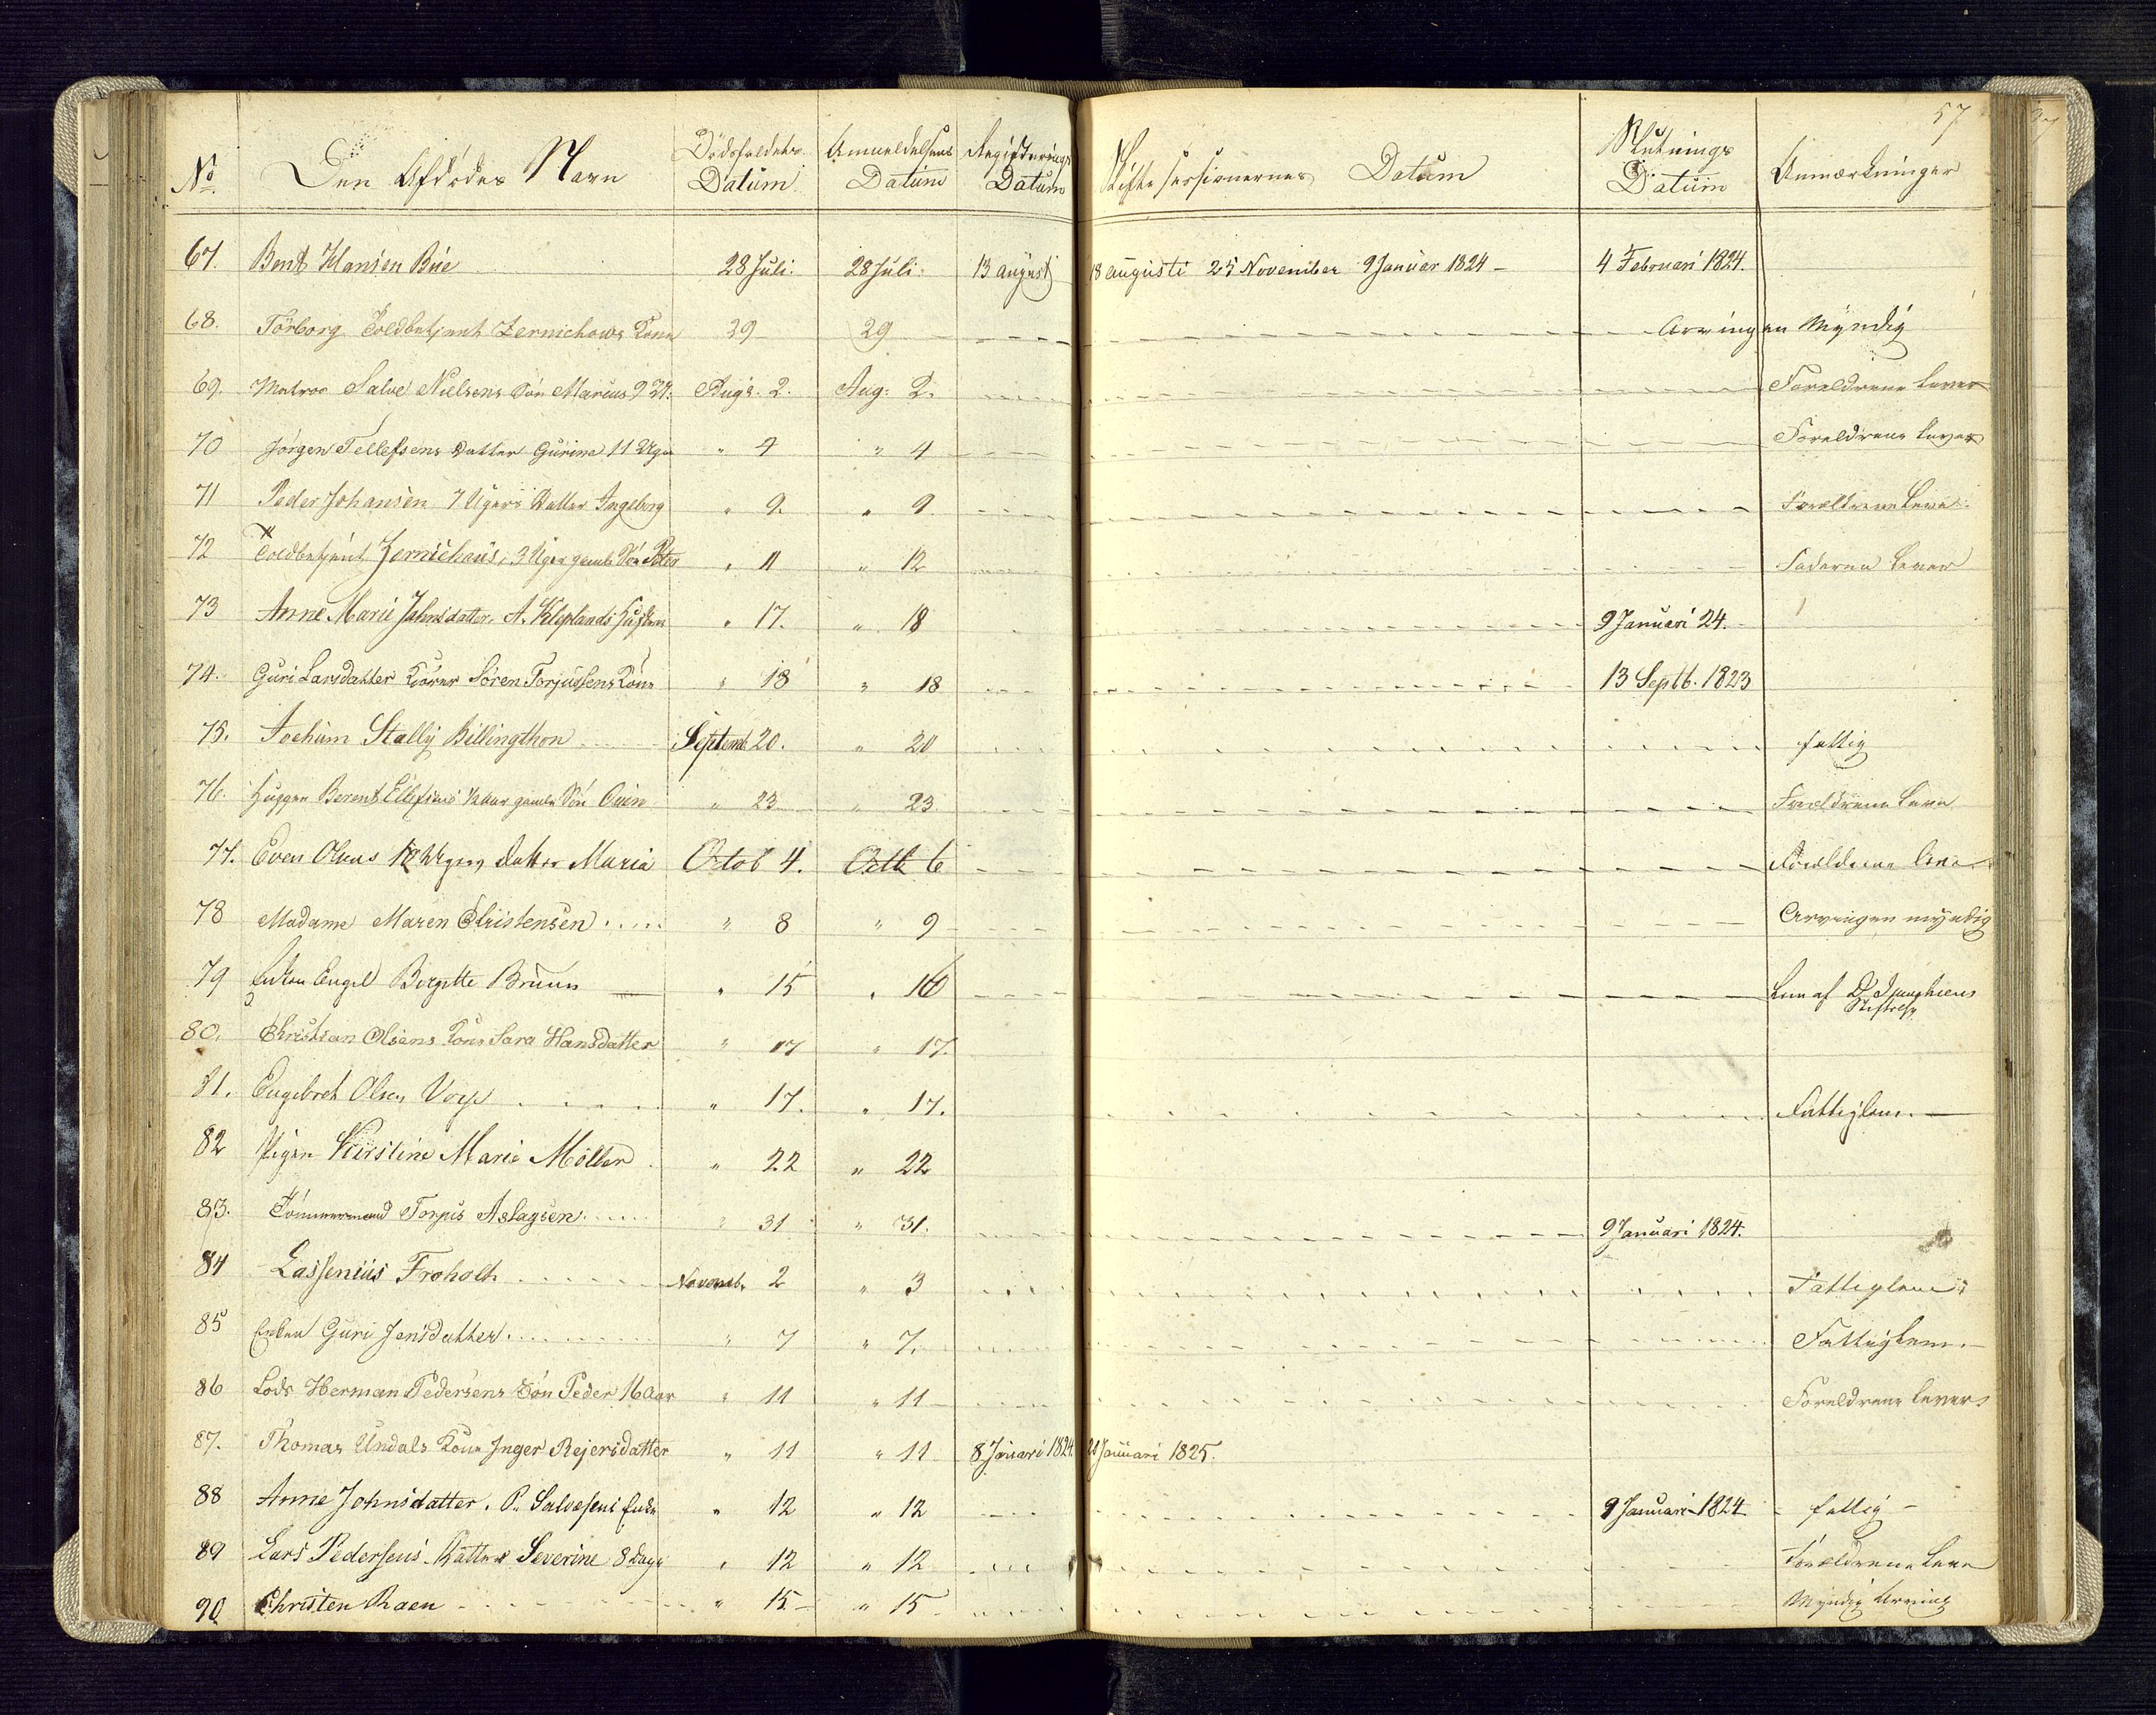 57
No. Den Afdødes Navn Dødsfaldets Datum Anmeldelsens Datum Registerings Datum Skifte sessionernes Datum Slutnings Datum Anmærkninger
67. Bent Hansen Bue 28 Juli. 28 Juli. 13 august 18 augusti 25 November 9 Januar 1824 – 4 Februari 1824.
68. Torborg Toldbetjent Zernichows Kone 29 29 Arvingen Myndig
69. Matros Salve Nielsens Søn Marius 9 Augs. 2. Aug: 2. Foreldrene Lever
70 Jørgen Tellefsens Datter Gurine 11 Uger " 4 " 4 Foreldrene Lever
71 Peder Johansen 7 Ugers Datter Ingeborg " 9. " 9 Forældrene Leve
72 Toldbetjent Zernichaus, 3 Uger gamle Søn Peter " 11 " 12 Faderen Lever
73 Anne Marie Jahnsdatter, A. Kleplands Hustru " 17. " 18 9 Januari 24.
74. Guri Larsdatter Kiører Søren Torjussens Kone " 18 " 18 13 Septb. 1823
75. Jochum Stally Billingthon Septemb. 20. " 20 fattig
76. Berent Ellefsens 1/2 Aar gamle Søn " 23 " 23 Forældrene Leve
77. Even Olsens 12 Uger Datter Maria Octob 4. Octb 6 Forældrene leve
78 Madame Maren Christensen " 8 " 9 Arvingen myndig
79 Enken Engel Birgitte Bruun " 15 " 16 Lem af
80. Christian Olsens Kone Sara Hansdatter " 17 " 17.
81. Engebret Olsen " 17. " 17. Fattiglem. –
82 Pigen Kirstine Marie Møller " 22 " 22
83. Tømmermand Torjus Aslagsen " 31 " 31. 9 Januari 1824.
84 Lassenius Froholt Novemb. 2 " 3 Fattiglem
85 Enken Guri Jensdatter " 7 " 7. Fattiglem. –
86 Lods Herman Pedersens Søn Peder 16 Aar " 11 " 11 Foreldrene lever
87. Thomas Undals Kone Inger Rejersdatter " 11 " 11 8 Januari 1824. 21 Januari 1825.
88 Anne Johnsdatter. P. Salvesens Enke " 12 " 12 9 Januari 1824 fattig –
89 Lars Pedersens Datter Severine 8 Dage " 12 " 12 Forældrene Leve
90 Christen Raen " 15 – " 15 Myndig Arving